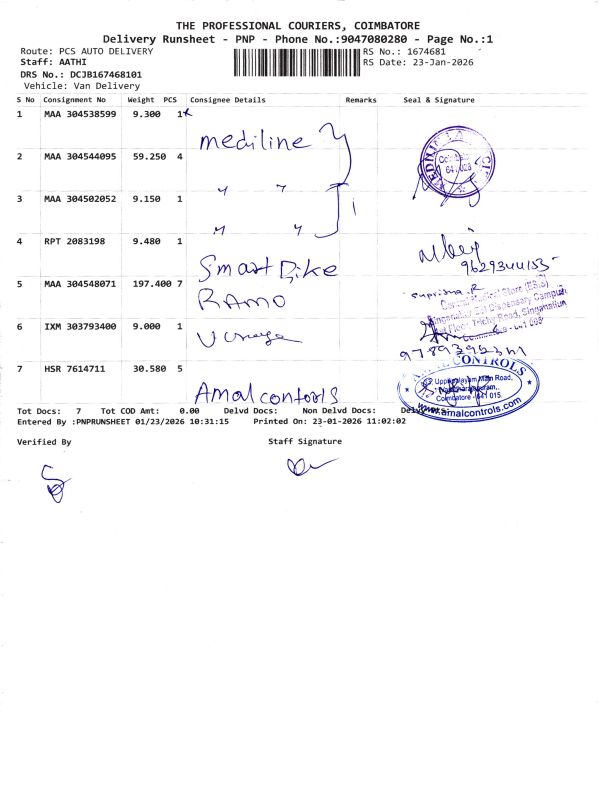 THE PROFESSIONAL COURIERS, COIMBATORE
Delivery Runsheet - PNP - Phone No.:9047080280 - Page No.:1
Route: PCS AUTO DELIVERY
RS No.: 1674681
Staff: AATHI
RS Date: 23-Jan-2026
DRS No.: DCJB167468101
Vehicle: Van Delivery
S No Consignment No Weight PCS Consignee Details Remarks Seal & Signature
1 MAA 304538599 9.300 1
mediline
2 MAA 304544095 59.250 4
" "
3 MAA 304502052 9.150 1
" "
4 RPT 2083198 9.480 1
Smart Bike
9629344155
5 MAA 304548071 197.400 7
RAMO
Supriya.R
Medical Store (ESIS)
Singanallur ESI Dispensary Campus
Floor Trichy Road, Singanallur
6 IXM 303793400 9.000 1
7 HSR 7614711 30.580 5
Amal controls
CONTROLS
Uppilipalayam Main Road,
Coimbatore - 641 015.
www.amalcontrols.com
Tot Docs: 7 Tot COD Amt: 0.00 Delvd Docs: Non Delvd Docs:
Entered By :PNPRUNSHEET 01/23/2026 10:31:15 Printed On: 23-01-2026 11:02:02
Verified By Staff Signature